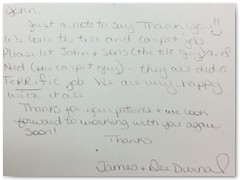 John,
Just a note to say Thank you!!
We love the tile and carpet job
Please let John & Sons (the tile guy) and
Ned (the carpet guy) - they all did a
TeRRific job We are very happy
with it all
Thanks for your patience & we look
forward to working with you again
Soon!
Thanks
James & Dee Durnal